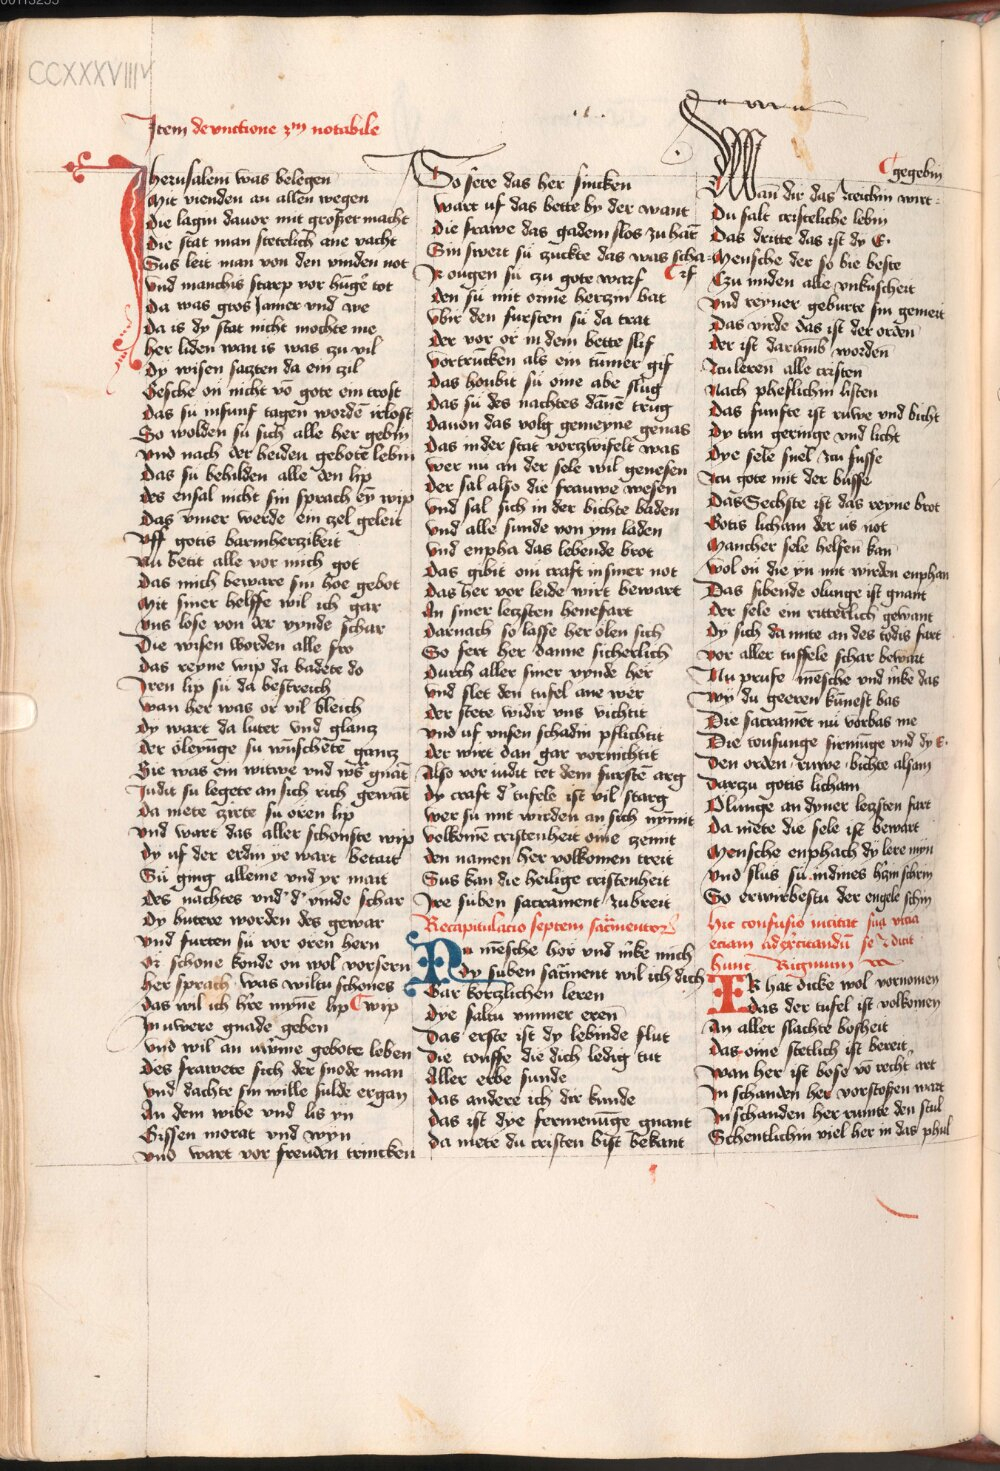 CCXXXVIIII
Item de vnctione ꝫm notabile
Iherusalem was belegen
Mit vienden an allen wegen
Die lagin dauor mit großer macht
Die stat man stetelich ane vacht
Sus leit man von den vinden not
Vnd manchis starp vor hūger tot
Da was gros Jamer vnd we
Da is dy stat nicht mochte me
Her liden wan is was zu vil
Dy wisen saczten da ein zil
Gesche on nicht vō gote ein trost
Das su infunf tagen wordē irlost
So wolden su sich alle her gebin
Vnd nach der heiden gebote lebin
Das su behilden alle den lip
Des ensal nicht sin sprach ey wip
Das vmer werde ein czel geleit
Vff gotis barmherczikeit
Nu betit alle vor mich got
Das mich beware sin hoe gebot
Mit siner helffe wil ich gar
Vns lose von der vynde schar
Die wisen worden alle fro
Das reyne wip da badete do
Iren lip su da bestreich
Wan her was or vil bleich
Dy wart da luter vnd glancz
Der oleyuge su wuschete gancz
Sie was ein witwe vnd was gnāt
Iudit su legete an sich rich gewāt
Da mete zirte su oren lip
Vnd wart das aller schonste wip
Dy uf der erdin ye wart betait
Sü ging alleine vnd yr mait
Des nachtes vnder d vinde schar
Dy hutere worden des gewar
Vnd furten su vor oren hern
Ir schone konde on wol vorsern
Her sprach was wiltu schones
Das wil ich hre mynē lip wip
In uwere gnade geben
Vnd wil an uwime gebote leben
Des frawete sich der snode man
Vnd dachte sin wille sulde ergan
An dem wibe vnd lis yn
Gissen morat vnd wyn
Vnd wart vor freuden trincken
So sere das her sincken
Wart uf das bette by der want
Die frawe das gadem slos zu hāt
Ein swert su zuckte das was scha
Ir ougen su zu gote warf rf
Den su mit orme herzin bat
Vbir den fursten su da trat
Der vor or in dem bette slif
Vortrucken als ein tumer gif
Das houbit sü ome abe slug
Das su des nachtes dānē trug
Dauon das volg gemeyne genas
Das inder stat vorzwifelt was
Wer nu an der sele wil genesen
Der sal also die frauwe wesen
Vnd sal sich in der bichte baden
Vnd alle sunde von ym laden
Vnd enpha das lebende brot
Das gibit om craft in siner not
Das her vor leide wirt bewart
An siner leczsten henefart
Darnach so lasse her olen sich
So fert her danne sicherlich
Durch aller siner vynde her
Vnd slet den tufel ane wer
Der stete widir vns vichtit
Vnd uf vnsen schadin pflichtit
Der wirt dan gar vornichtit
Also vor iudit tet dem furste arg
Dy craft d tufele ist vil starg
Wer su mit wirden an sich nymit
Volkomē cristenheit ome zemit
Den namen her volkomen treit
Sus kan die heilige cristenheit
Ire suben sacrament zu breit
Recapitulacio septem sacramentor
Nu mēsche hor vnd mke mich
Dy suben sacrment wil ich dich
Gar korczlichen leren
Dye saltu vmmer eren
Das erste ist dy lebinde flut
Die touffe die dich ledig tut
Aller erbe sunde
Das andere ich dir kunde
Das ist dye fermenūge gnant
Da mete du cristen bist bekant
gegebin
Wan dir das zceichin wirt
Du salt cristeliche lebin
Das dritte das ist dy E.
Mensche der so bie beste
Czu miden alle vnkuscheit
Vnd reyner geburte sin gemeit
Das virde das ist der orden
Der ist darumb worden
Zcu leren alle cristen
Nach pheflichin listen
Das funfte ist ruwe vnd bicht
Dy tun geringe vnd licht
Dye sele snel zcu fusse
Zcu gote mit der busse
Das Sechste ist das reyne brot
Gotis licham der us not
Mancher sele helfen kan
Wol on die yn mit wirden enphan
Das sibende olunge ist gnant
Der sele ein ritterlich gewant
Dy sich da mite an des todis fart
Vor aller tuffele schar bewart
Nu prufe mēsche vnd mke das
Wy du geeren kunest bas
Die sacramēt nu vorbas me
Die toufunge firmūge vnd dy E.
Den orden ruwe bichte alsam
Darzu gotis licham
Olunge an dyner leczsten fart
Da mete die sele ist bewart
Mensche enphach dy lere myn
Vnd slus su indines hczin schrin
So erwirbestu der engele schin
Hic confusio incitat sua vicia
eciam ad exercitandū se & dicit
hunc Rigmum
Er hat dicke wol vornomen
Das der tufel ist volkomen
An aller slachte bosheit
Das oine stetlich ist bereit
Wan her ist bose vō recht art
In schanden her vorstoßen wart
In schanden her rumte den stul
Schentlichin viel her in das phul